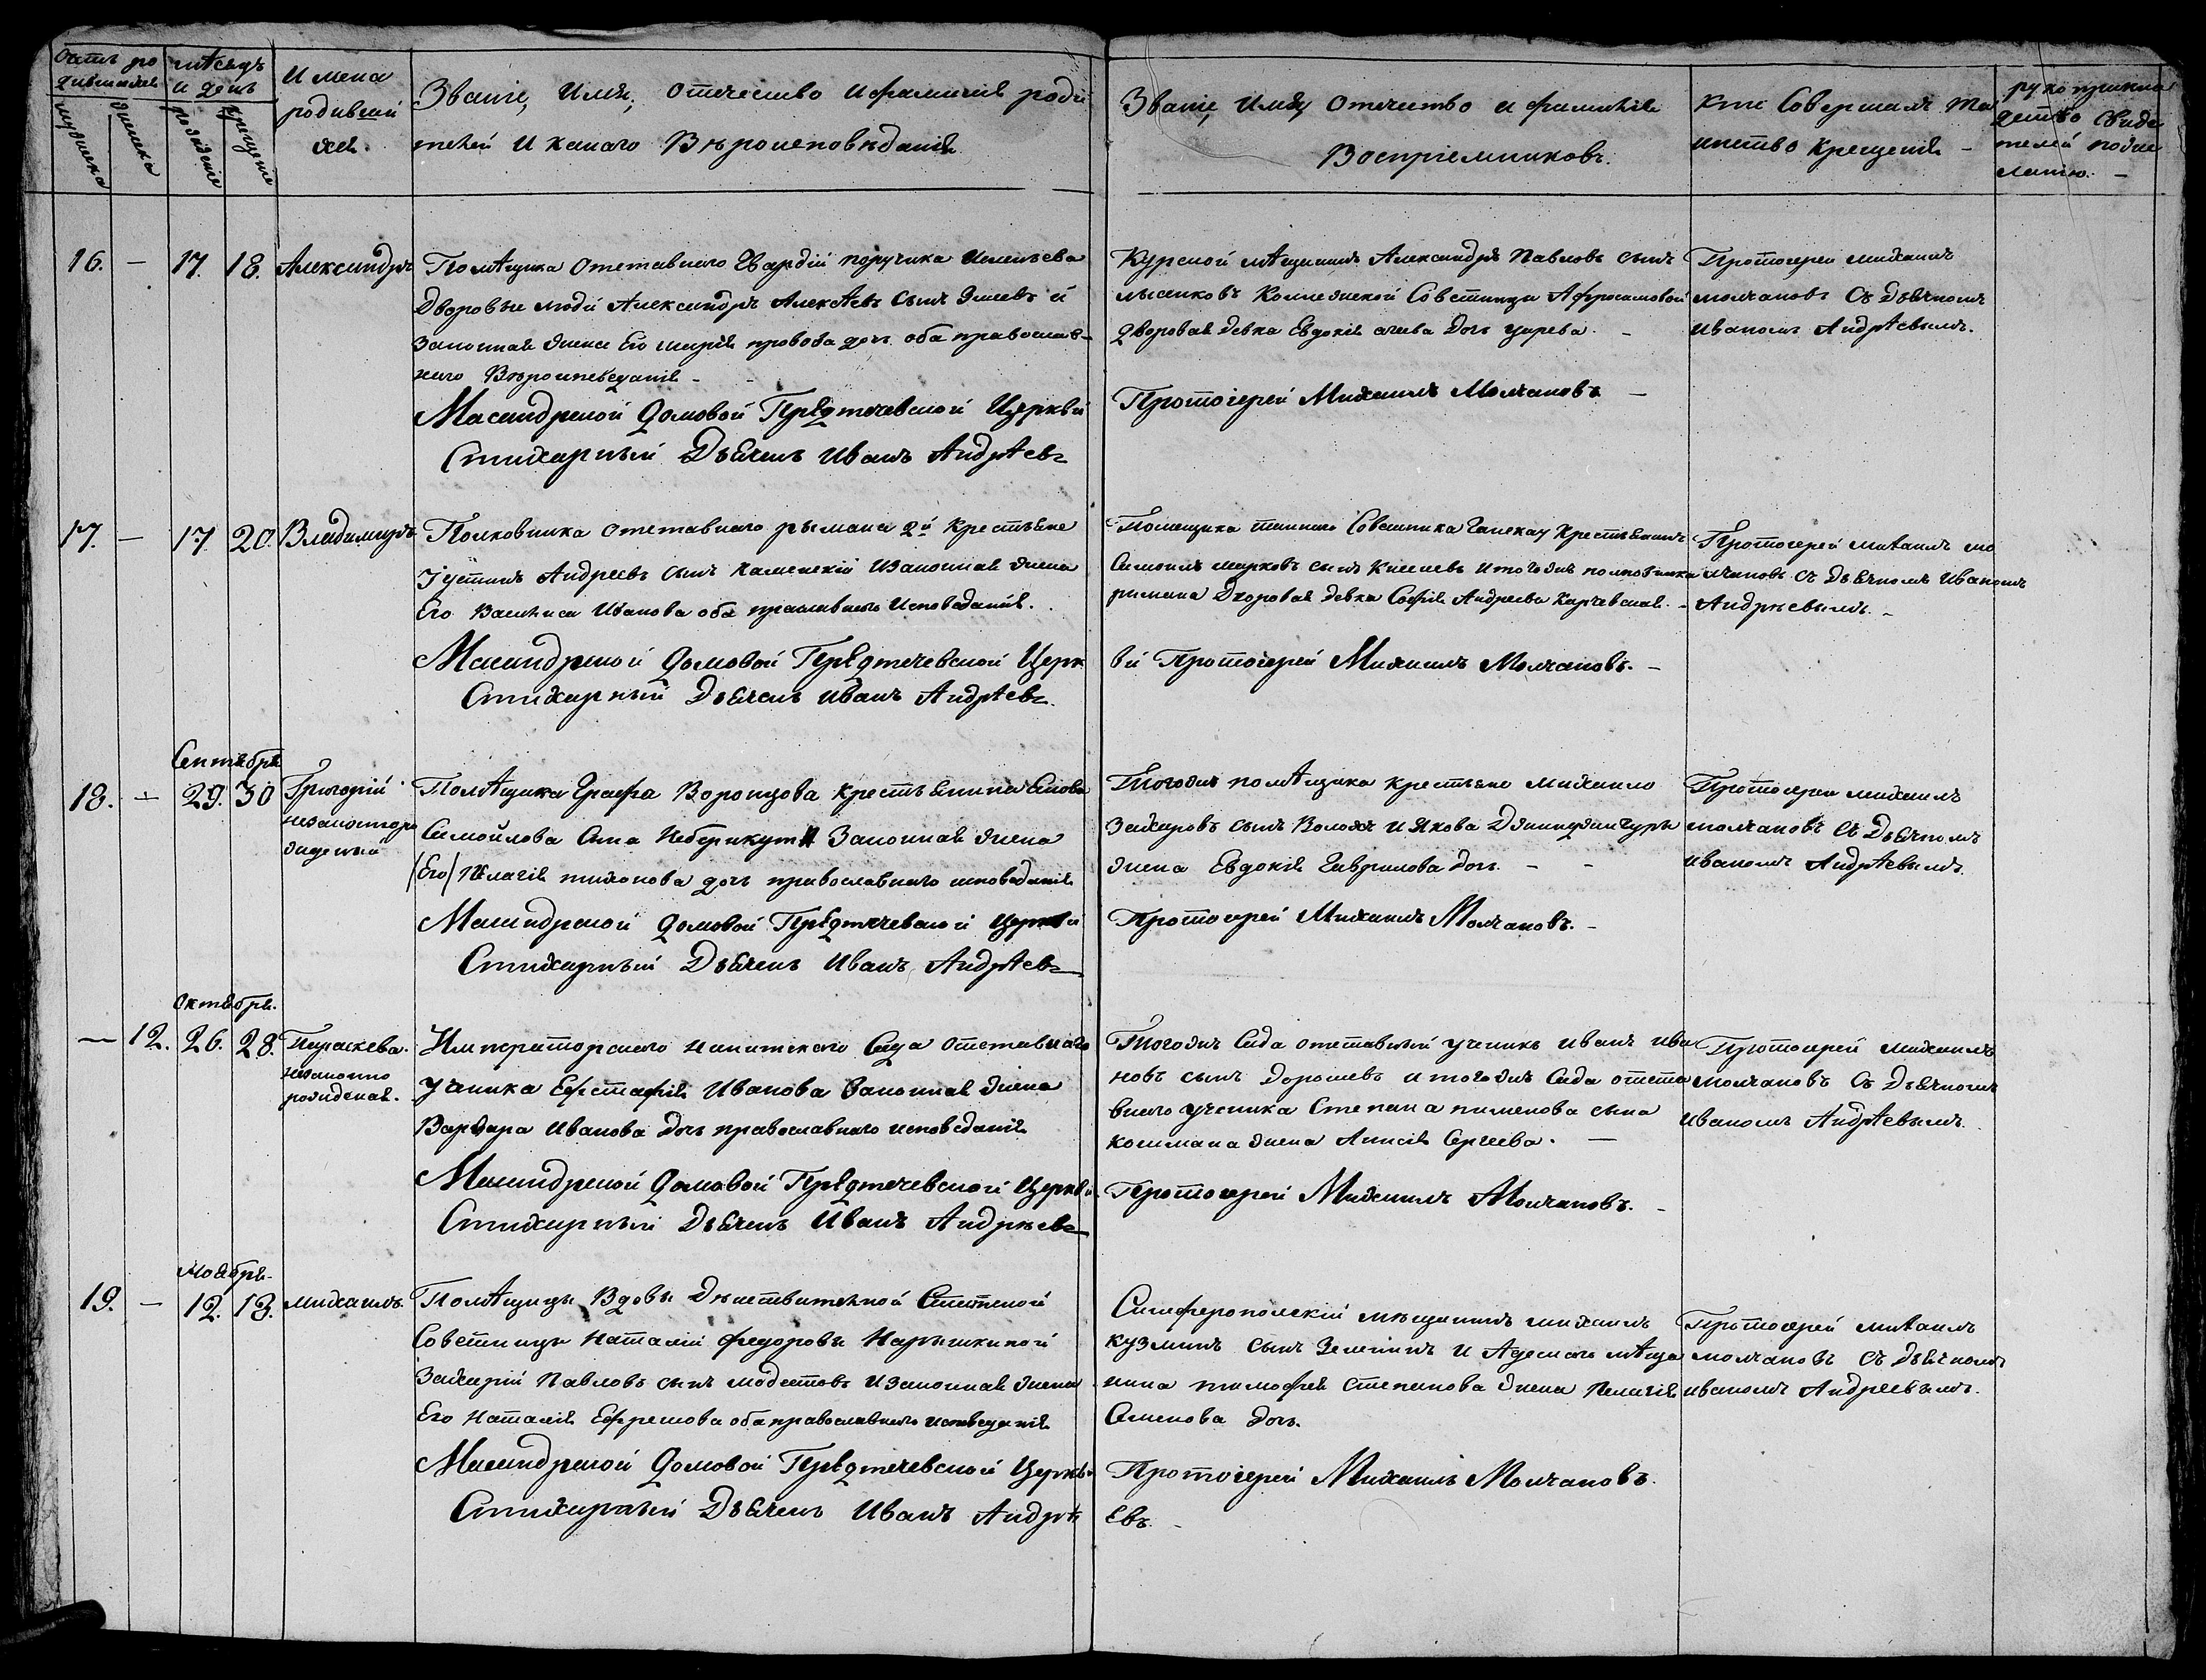 Счетъ ро
дившихся
мужеска
женска
мѢсяцъ
и день
рожденіе
крещеніе
Имена
родивший
хся.
Званіе, Имя, отечество и фамилія роди
телей И какаго Вѣроисповѣданія
Званіе, Имя, отечество и фамилія
Воспріемниковъ.
Кто Совершалъ та
инство Крещенія –
рукоприкла
дство свиде
телей по же
ланію. –
16. – 17. 18. Александръ
ПомѢщика отставнаго Гвардіи поручика
Дворовые люди Александръ АлексѢевъ Сынъ и
Законная жена Его дочь оба православ-
наго Вѣроисповеданія –
Масандрской домовой Предтечевской Церкви
Стихарный Дьячекъ Иванъ АндрѢевъ
Курской мѢщанинъ Александръ Павловъ сынъ
лысенковъ Коллежской Совѣтницы
дворовая девка Евдокія дочь царева. –
Протоіерей Михаилъ Молчановъ –
Протоіереи михаилъ
молчановъ Съ дьячкомъ
иваномъ АндрѢевымъ.
17. – 17. 20. Владимиръ
Полковника отставнаго рымана 2й Крестьяне
Іустинъ Андреевъ сынъ каменскій И законная жена
Его Василиса Иванова оба православнаго Исповеданія.
Масандрской домовой Предтечевской Церк
Стихарный Дьячекъ иванъ АндрѢевъ
Помещика тайнаго Советника Крестьянинъ
марковъ сынъ Киселевъ и тогожъ полковника
римана Дворовая девка Софія Андреева –
ви Протоіерей Михаилъ Молчановъ. –
Протоіерей михаилъ мо
лчановъ съ дьячкомъ Иваномъ
Андрѣевымъ. –
Сентября
18. – 29. 30 Григорій
незаконноро
жденый
ПомѢщика Графа Воронцова крестьянина
Самойлова Сына Законная жена
/Его/ Пелагія тихонова дочь православнаго исповеданія
Масандрской домовой Предтечевской Церкви
Стихарный Дьячекъ Иванъ АндрѢевъ
Тогожъ помѢщика крестьяне михаило
Захаровъ сынъ и Якова
жена Евдокія Гаврилова дочь. – –
Протоіерей Михаилъ Молчановъ. –
Протоіереи михаилъ
молчановъ Съ Дьячкомъ
иваномъ АндрѢевымъ.
октября.
– 12. 26. 28. Параскева.
незаконно
рожденая.
Императорскаго Никитскаго Сада отставнаго
ученика Ефстафія Иванова Законная жена
Варвара Иванова дочь православнаго исповеданія
Масандрской домовой Предтечевской Церкви
Стихарный Дьячекъ Иванъ Андрѣевъ
Тогожъ Сада отставный ученикъ иванъ ива
новъ сынъ дорошевъ и тогожъ Сада отста
внаго ученика Степана пименова сына
кошмана жена Анисія Сергеева. –
Протоіерей Михаилъ Молчановъ. –
Протоіерей михаилъ
молчановъ Съ Дьячкомъ
Иваномъ АндрѢевымъ.
Ноября.
19. – 12. 13. михаилъ.
ПомѢщицы Вдовы Дѣиствителной Статской
Советницы наталіи федоровы Нарышкиной
Захарій Павловъ сынъ модестовъ И законная жена
Его наталія Ефремова оба православнаго исповеданія
Масандрской домовой Предтечевской Церкви
Стихарный Дьячекъ Иванъ Андрѣ
Симферополскій мѣщанинъ михаилъ
кузминъ сынъ и Адескаго мѢща
нина тимофея степанова жена Пелагія
Семенова дочь.
Протоіерей Михаилъ Молчановъ.
Евъ. –
Протоіерей михаилъ
молчановъ съ дьячкомъ
иваномъ Андреевымъ.